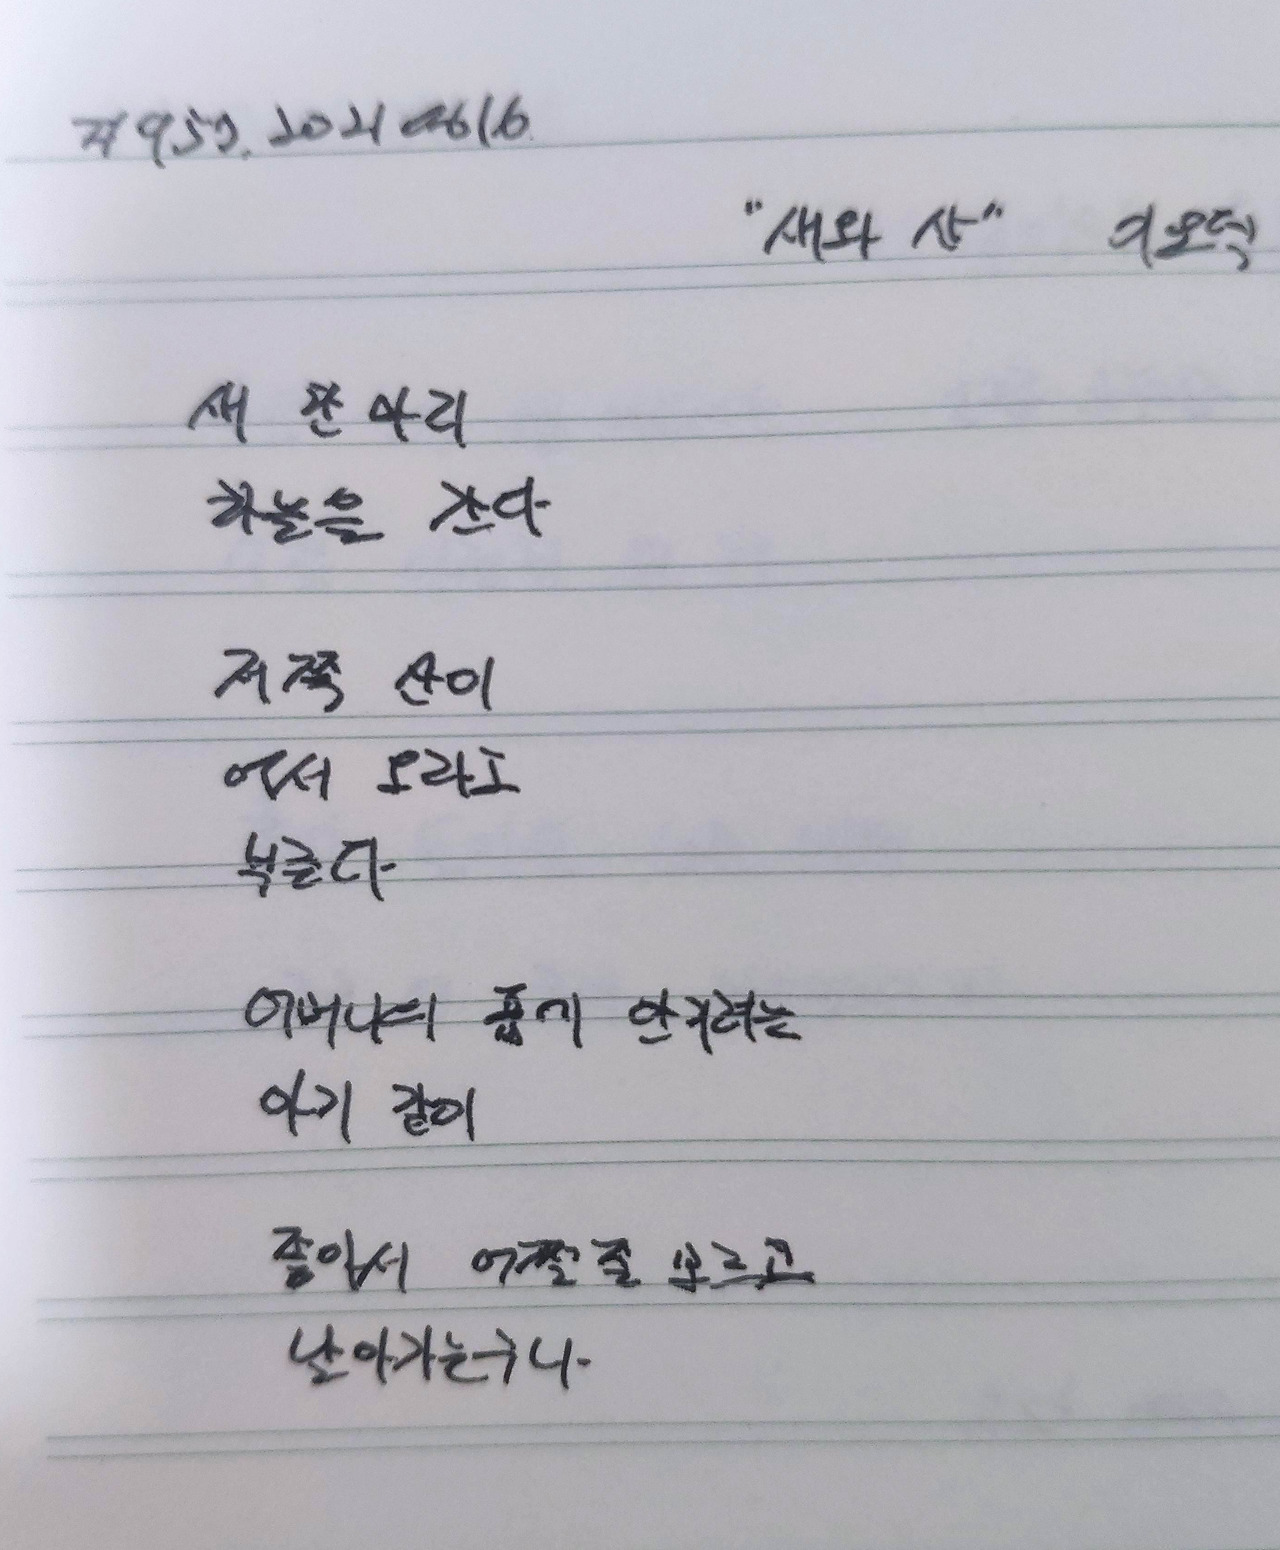 "새와 산" 이오덕
새 한 마리
하늘을 간다
저쪽 산이
어서 오라고
부른다
어머니의 품에 안기려는
아기 같이
좋아서 어쩔 줄 모르고
날아가는구나